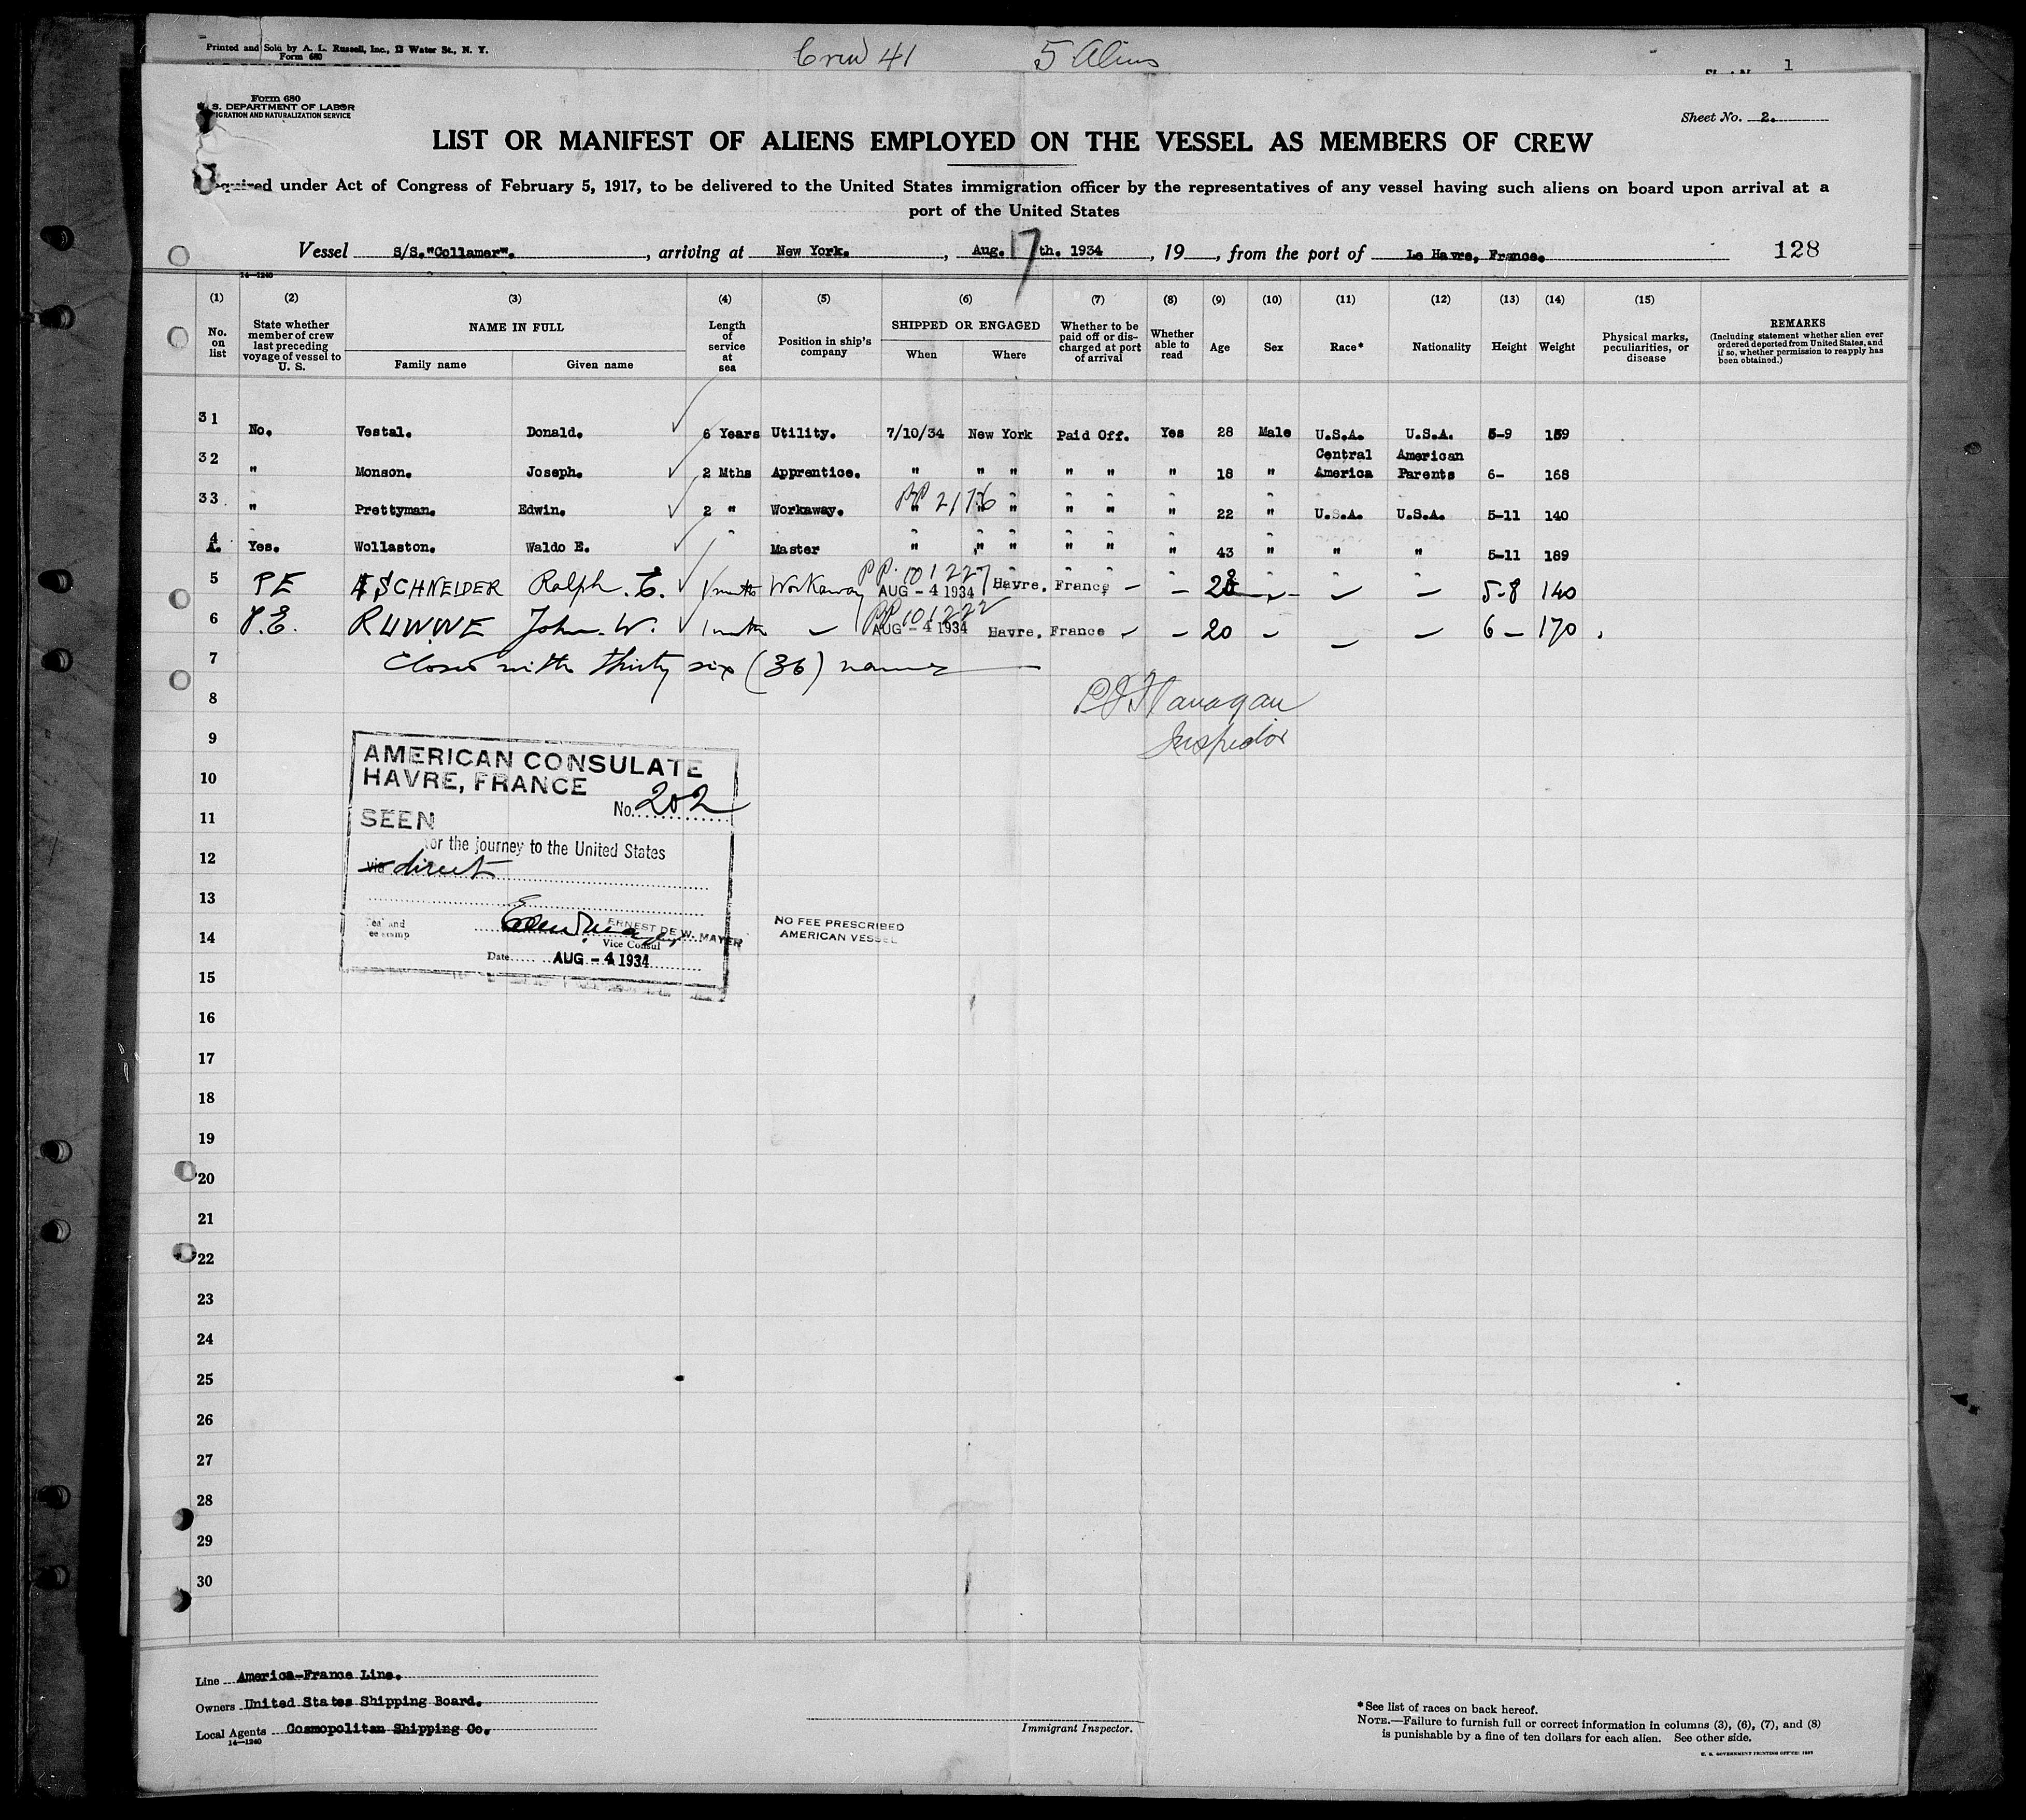 Printed and Sold by A. L. Russell, Inc., 13 Water St., N. Y.
Form 680
Crew 41 5 Aliens
1
Form 680
S. DEPARTMENT OF LABOR
IGRATION AND NATURALIZATION SERVICE
Sheet No. 2.
LIST OR MANIFEST OF ALIENS EMPLOYED ON THE VESSEL AS MEMBERS OF CREW
quired under Act of Congress of February 5, 1917, to be delivered to the United States immigration officer by the representatives of any vessel having such aliens on board upon arrival at a
port of the United States
Vessel S/S."Collamer". , arriving at New York. , Aug. 17th. 1934 , 19 , from the port of Le Havre, France. 128
14—1240
(1) (2) (3) (4) (5) (6) (7) (8) (9) (10) (11) (12) (13) (14) (15)
No. on list
State whether member of crew last preceding voyage of vessel to U. S.
NAME IN FULL
Family name Given name
Length of service at sea
Position in ship's company
SHIPPED OR ENGAGED
When Where
Whether to be paid off or discharged at port of arrival
Whether able to read
Age
Sex
Race*
Nationality
Height
Weight
Physical marks, peculiarities, or disease
REMARKS
(Including statement whether alien ever ordered deported from United States, and if so, whether permission to reapply has been obtained.)
31 No. Vestal. Donald. 6 Years Utility. 7/10/34 New York Paid Off. Yes 28 Male U.S.A. U.S.A. 5-9 159
32 " Monson. Joseph. 2 Mths Apprentice. " " " " " " 18 " Central America American Parents 6- 168
PP 2176
33 " Prettyman. Edwin. 2 " Workaway. " " " " " " 22 " U.S.A. U.S.A. 5-11 140
4 Yes. Wollaston. Waldo E. Master " " " " " " 43 " " " 5-11 189
PP. 101227
5 PE SCHNEIDER Ralph. E. 1 month Workaway AUG - 4 1934 Havre, France - - 22 - - - 5-8 140
PP 101222
6 P.E. RUWWE John. W. 1 month - AUG - 4 1934 Havre, France - - 20 - - - 6 - 170
7 Closed with thirty six (36) names
8 P J Flanagan
9 Inspector
10
11
12
13
14
15
16
17
18
19
20
21
22
23
24
25
26
27
28
29
30
AMERICAN CONSULATE
HAVRE, FRANCE
No. 202
SEEN
for the journey to the United States
via direct
ERNEST DE W. MAYER
Vice Consul
Date AUG - 4 1934
NO FEE PRESCRIBED
AMERICAN VESSEL
Line America-France Line.
Owners United States Shipping Board.
Local Agents Cosmopolitan Shipping Co.
14—1240
Immigrant Inspector.
*See list of races on back hereof.
NOTE.—Failure to furnish full or correct information in columns (3), (6), (7), and (8)
is punishable by a fine of ten dollars for each alien. See other side.
U. S. GOVERNMENT PRINTING OFFICE: